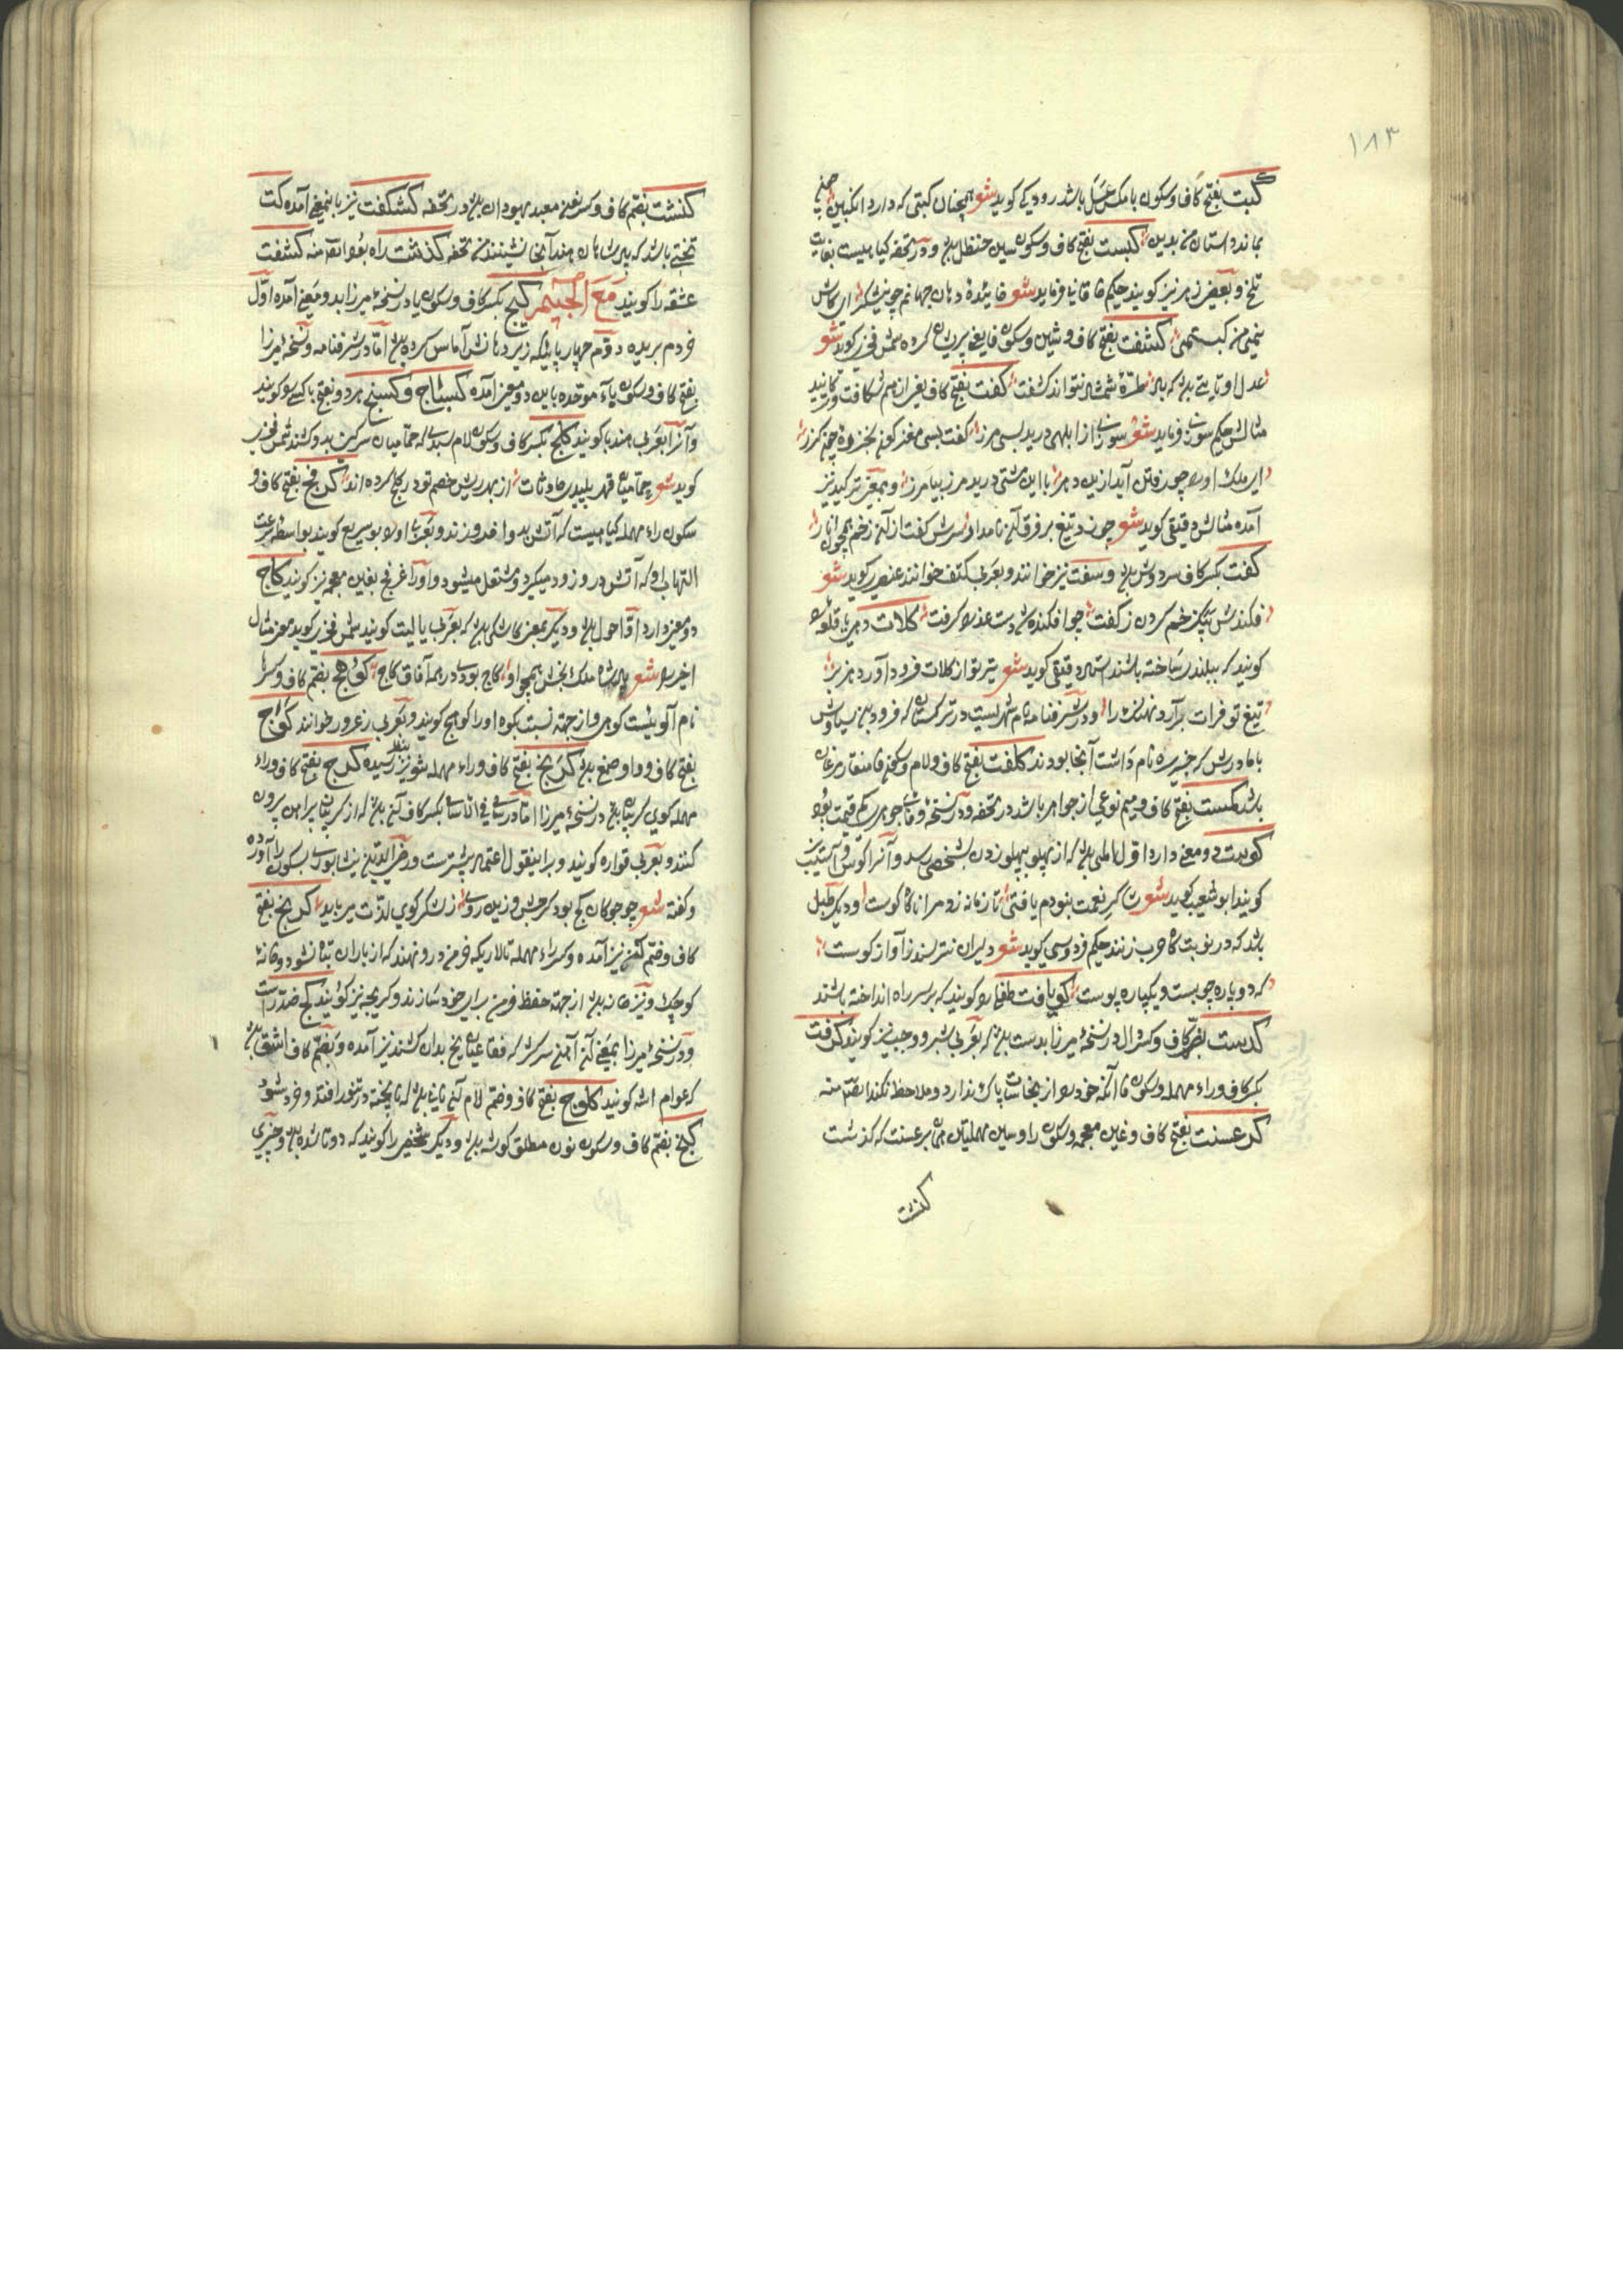 ۱۸۳
کبت بفتح کاف و سکون با مکس عسل باشد رودکی کوید شعر همچنان کبتی که دارد انکبین چون
بماند داستان من بدین کبست بفتح کاف و سکون سین حنظل بود و در تحفه کیاهیست بغایت
تلخ و بعضی زهر نیز کویند حکیم خاقانی فرماید شعر
کشفت بفتح کاف و شین و سکون فا یعنی پریشان کرده شمس فخری کوید شعر
عدل او تا بود که باد طرهٔ شمشاد نتواند کشفت کفت بفتح کاف یعنی از هم شکافت و ترکانید
مثالش حکیم سوزنی فرماید شعر سوزنی از ابلهی درید بسی مرز کفت بسی مغز کون
این ملک اوراد چون رفتن آید ازین دهر با این مشتی درید مرز بیامرز و بمعنی ترکید نیز
آمده مثالش دقیقی کوید شعر چون دو تیغ بر فرق آن نامدار سرش کفت از آن زخم همچون انار
کفت بکسر کاف سر دوش بود و سفت نیز خوانند و بعربی کتف خوانند عنصری کوید شعر
فکندش بیک زخم کردن ز کفت چو افکنده شد دست عذرا کرفت کلات دهی یا قلعه
کویند که ببلندی ساخته باشند استاد دقیقی کوید شعر تیر تو از کلات فرود آورد هزبر
تیغ تو از فرات برآرد نهنک را و در شرفنامه نام شهریست در ترکستان که فرود بن سیاوش
با مادرش که جریره نام داشت آنجا بودند کلفت بفتح کاف و لام و سکون فا منقار مرغان
باشد کمست بفتح کاف و میم نوعی از جواهر باشد در تحفه و در نسخهٔ وفائی جوهری کم قیمت بود
کوست دو معنی دارد اول المی بود که از پهلو بپهلو زدن بشخصی رسد و آنرا کوس و آسیب نیز
کویند ابو شعیب کوید شعر شاکر نعمت نبودم یافتی تا زمانه زد مرا ناکاه کوست و دیکر طبل
باشد که در نوبتکاه حرب زنند حکیم فردوسی کوید شعر دلیران نترسند ز آواز کوست
که دو پاره چوبست و یکپاره پوست کویافت طفلی را کویند که بر سر راه انداخته باشند
کدست بضم کاف و کسر دال در نسخهٔ میرزا بدست بود که بعربی شبر و وجب نیز کویند کرفت
بکسر کاف و راء مهمله و سکون فا آنکه خود را از نجاسات پاک ندارد و ملاحظه نکند
کرغست بفتح کاف و غین معجمه و سکون را و سین مهملتین همان برغست که کذشت
کنشت
کنشت بضم کاف و کسر نون معبد یهودان بود در تحفه کشکفت نیز باینمعنی آمده کت
تختی باشد که پادشاهان هند آنجا نشینند من تحفه کذشت راه بود ایضا منه کشفت
عشقه را کویند مع الجیم کبج بکسر کاف و سکون با در نسخهٔ میرزا بدو معنی آمده اول
خر دم بریده دوم چهارپائیکه زیر دهانش آماس کرده بود اما در شرفنامه و نسخهٔ میرزا
بفتح کاف و سکون یاء موحده باین دو معنی آمده کستاج و کسنج هر دو بفتح با کسی را کویند
و آنرا بعربی هندبا کویند کلج بکسر کاف و سکون لام سبدی که حمامیان سرکین بدو کشند شمس فخری
کوید شعر حمامیان قهر پلیدی حادثات از بهر ریش خصم تو در کلج کرده اند کرفج بفتح کاف و
سکون راء مهمله کیاهیست که آتش بدو افروزند و بعربی اورا بو سریع کویند بواسطه سرعت
التهاب او که آتش در و زود میکیرد و مشتعل میشود و او را غرفج بغین معجمه نیز کویند کاج
دو معنی دارد اول احول بود و دیکر بمعنی کاشکی بود که بعربی یا لیت کویند شمس فخری کوید معنی مثال
اخیر را شعر پادشاه ملک بخش همچو او کاج بودی در همه آفاق کاج کوهج بضم کاف و کسر ها
نام آلوئیست کوهی و از جهة نسبت بکوه اورا کوهج کویند و بعربی زعرور خوانند کواج
بفتح کاف و واو صمغ بود کرنج بفتح کاف و راء مهمله شونیز بنظر رسیده کرج بفتح کاف و راء
مهمله کوی کریبان بود در نسخهٔ میرزا اما در سامی فی الاسامی بکسر کاف آن بود که از کریبان پیراهن بیرون
کنند و بعربی قواره کویند و براینقول اعتماد بیشترست و نیشابوری بسکون را آورده
و کفته شعر
کاف و ضم کاف نیز آمده و کسر راء مهمله تالاریکه خرمن درو نهند که از باران تباه نشود و خانهٔ
کوچک و نیز خانه بود از جهة حفظ خرمن برای خود سازند و کریچه نیز کویند کج ضد راست
و در نسخهٔ میرزا بمعنی آن آهنی سرکژ که فقاعیان یخ بدان کشند نیز آمده و بضم کاف اشق بود
که عوام اشه کویند کلوج بفتح کاف و ضم لام آن نانی بود که ناپخته در تنور افتد و خرد شود
کنج بضم کاف و سکون نون مطلق کوشه بود و دیکر شخصی را کویند که دوتا شده بود و چیزی